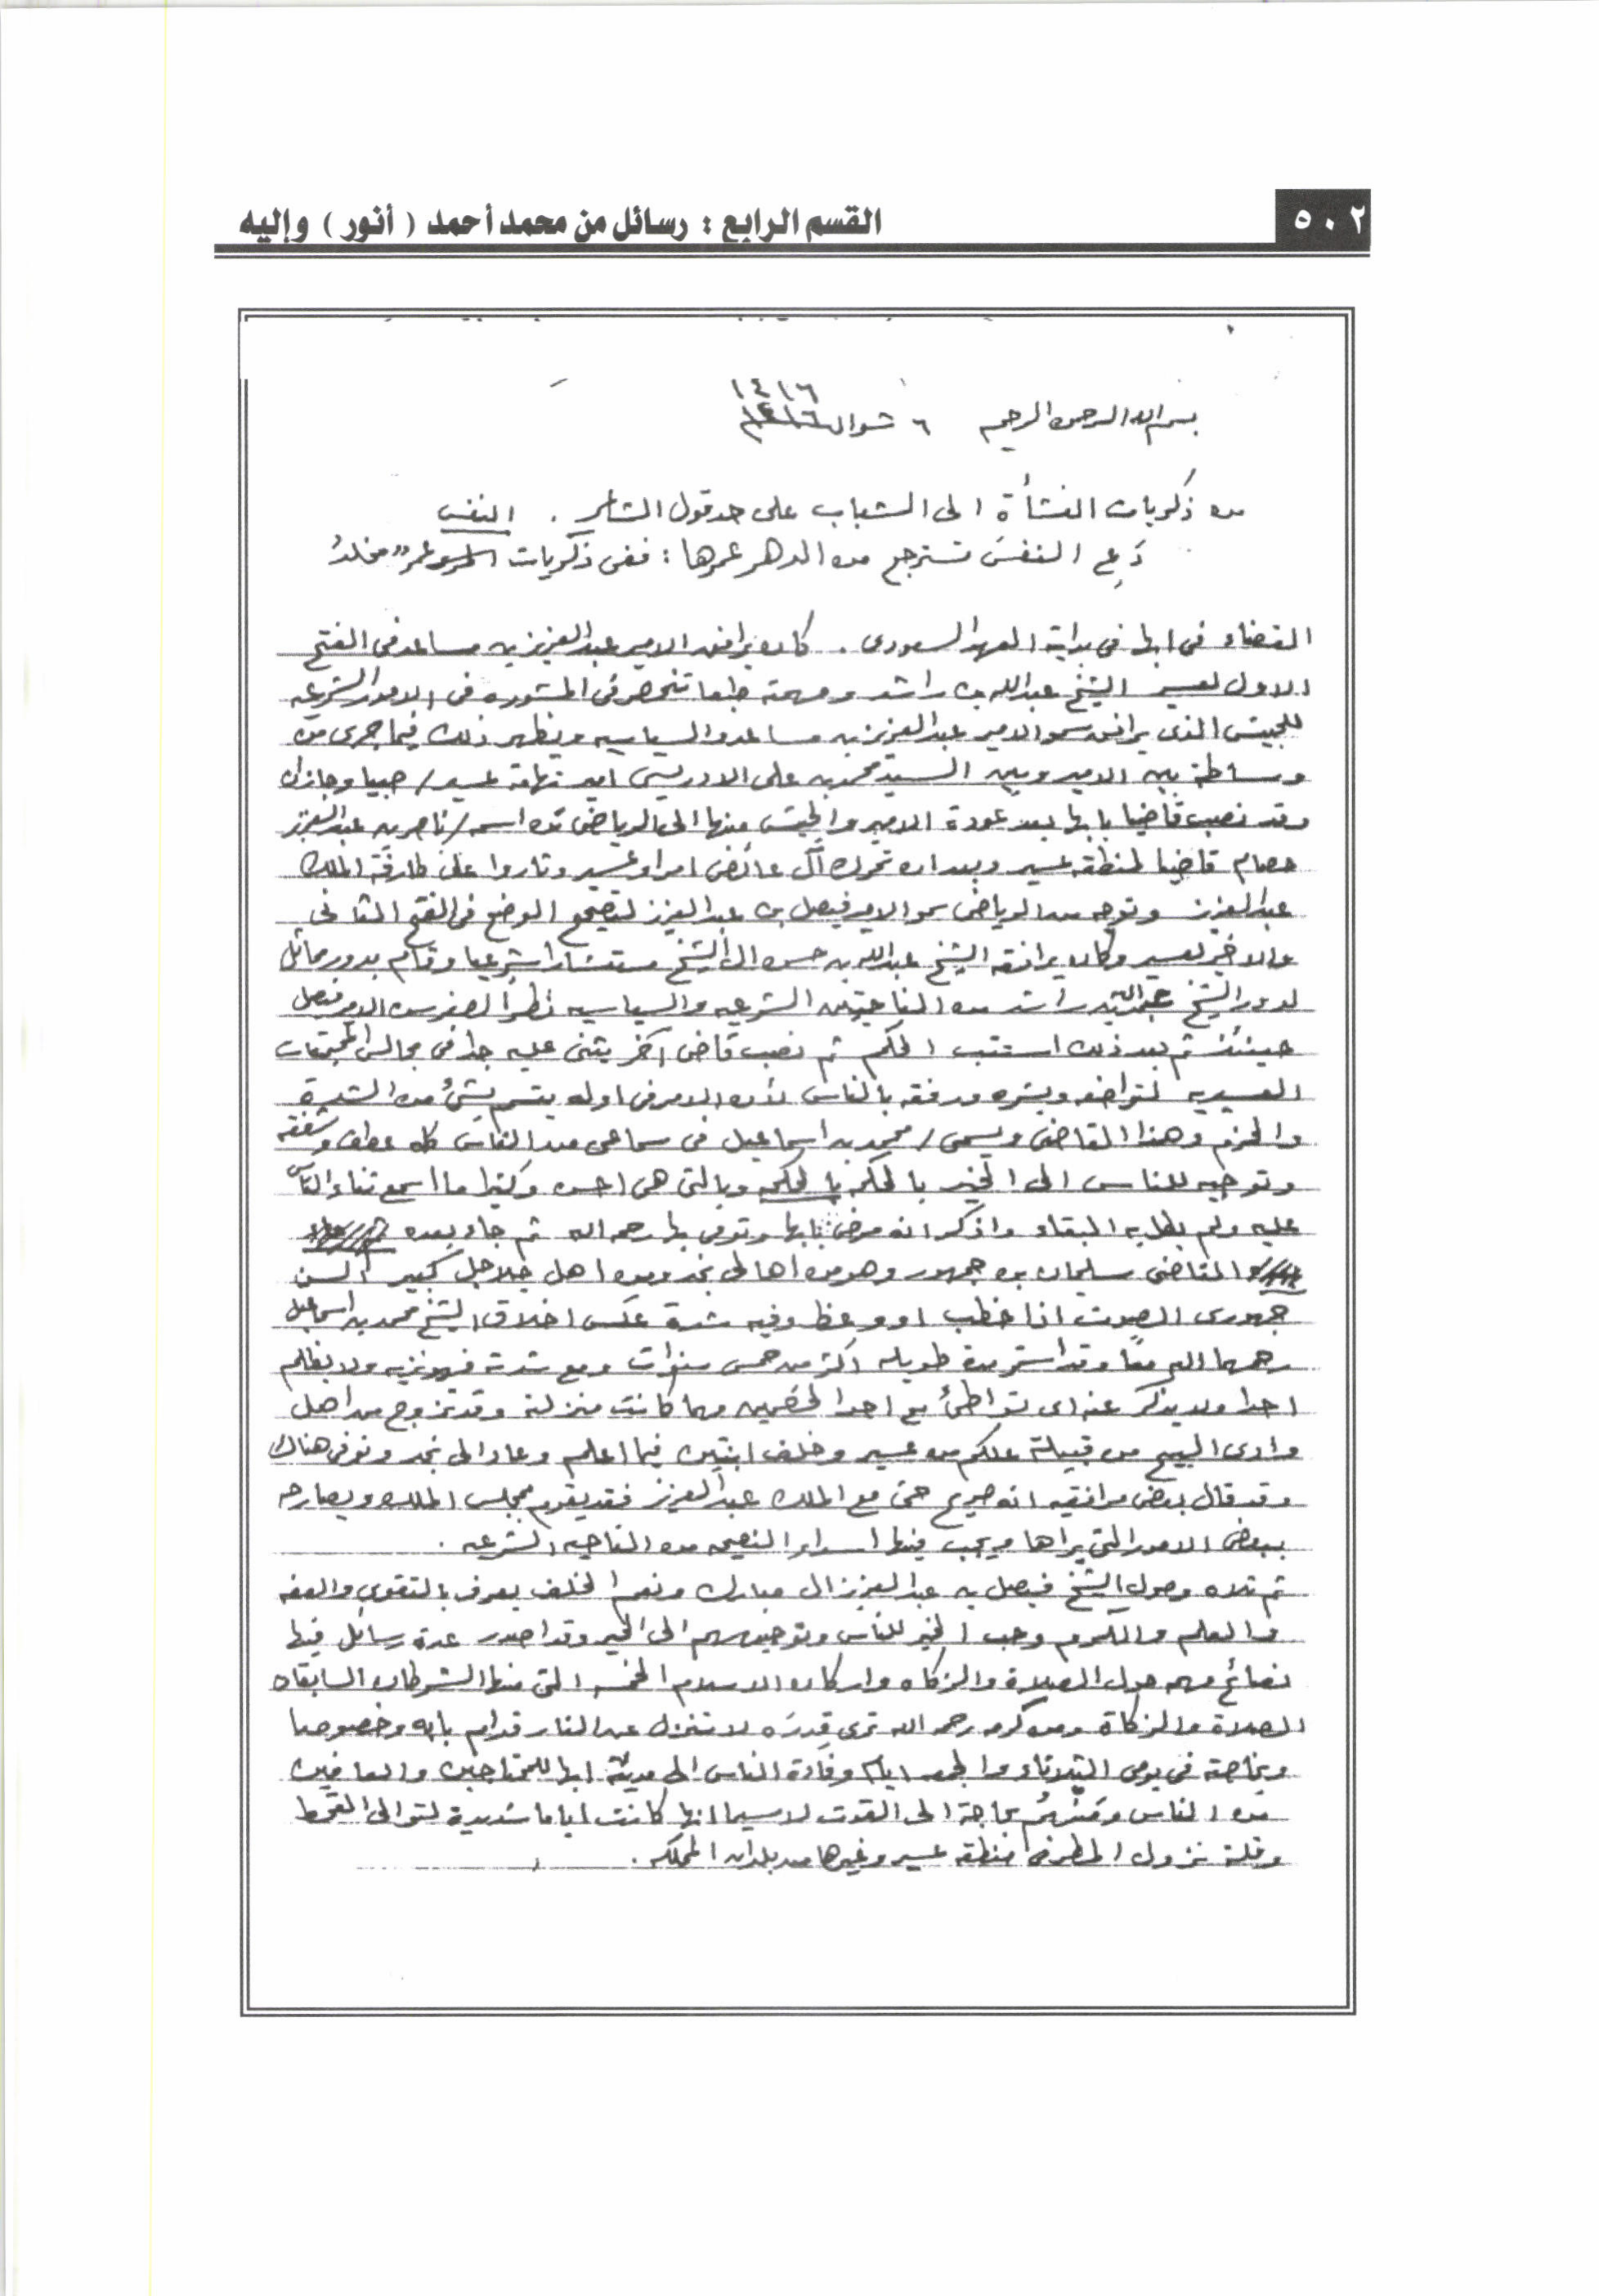 ٥٠٢
القسم الرابع : رسائل من محمد أحمد ( أنور ) وإليه
١٤١٦
بسم الله الرحمن الرحيم ٦ شوال ١٤١٦
من ذكريات النشأة الى الشباب على حد قول الشاعر . النفس
دَعِ النفسَ تسترجع من الدهر عمرها : ففى ذكريات عمر " مخلدُ
القضاء فى ابها فى بداية العهد السعودى . كان يرافق الامير عبدالعزيز بن مساعد فى الفتح
الاول لعسير الشيخ عبدالله بن راشد ومهمته طبعا تنحصر فى المشوره فى الامور الشرعيه
للجيش الذى يرافق سمو الامير عبدالعزيز بن مساعد والسياسيه ويظهر ذلك فيما جرى من
وساطة بين الامير وبين السيد محمد بن على الادريسى امير تهامة عسير / صبيا وجازان
وقد نصب قاضيا بابها بعد عودة الامير والجيش منها الى الرياض من اسمه / ناصر بن عبدالعزيز
حصام قاضيا لمنطقة عسير وبعد ان تحرك آل عائض امراء عسير وثاروا على طارفة الملك
عبدالعزيز وتوجه من الرياض سمو الامير فيصل بن عبدالعزيز لتصحيح الوضع فى الفتح الثانى
والاخير لعسير وكان يرافقه الشيخ عبدالله بن حسن ال الشيخ مستشارا شرعيا وقام بدور مماثل
لدور الشيخ عبدالله بن راشد من الناحيتين الشرعيه والسياسيه نظراً لصغر سن الامير فيصل
حينئذ ثم بعد ذلك استتب الحكم ثم نصب قاضى آخر يثنى عليه جدا فى مجالس المجتمعات
العسيريه لتواضعه وبشره ورفقه بالناس لأن الامر فى اوله يتسم بشئ من الشدة
والحزم وهذا القاضى ويسمى / محمد بن اسماعيل فى سماعى من الناس كله عطف وشفقه
وتوجيه للناس الى الخير بالحكم بالحكمه وبالتى هى احسن وكثيرا ما اسمع ثناء الناس
عليه ولم يطل به البقاء واذكر انه مرض بابها وتوفى بها رحمه الله ثم جاء بعده
القاضى سليمان بن جمهور وهو من اهالى نجد ومن اهل جلاجل كبير السن
جهورى الصوت اذا خطب او وعظ وفيه شدة عكس اخلاق الشيخ محمد بن اسماعيل
رحمهما الله معًا وقد استمر مدة طويله اكثر من خمس سنوات ومع شدته فهو نزيه ولا يظلم
احدا ولا يذكر عنه اى تواطئ مع احد الخصمين مهما كانت منزلته وقد تزوج من اهل
وادى البيح من قبيلة علكم من عسير وخلف ابنتين فيما اعلم وعاد الى نجد وتوفى هناك
وقد قال بعض مرافقيه انه صريح حتى مع الملك عبدالعزيز فقد يقوم بمجلس الملك ويصارحه
ببعض الامور التى يراها ويجب فيها اسداء النصيحه من الناحيه الشرعيه .
ثم تلاه وصول الشيخ فيصل بن عبدالعزيز ال مبارك ونعم الخلف يعرف بالتقوى والعفه
والعلم والكرم وحب الخير للناس وتوجيههم الى الخير وقد اصدر عدة رسائل فيها
نصائح مهمه حول الصلاة والزكاه واركان الاسلام الخمسه التى منها الشرطان السابقان
الصلاة والزكاة ومن كرمه رحمه الله ترى قِدرَه لا تنزل من النار قدام بابه وخصوصا
وبخاصة فى يومى الثلاثاء والجمعه ايام وفادة الناس الى مدينة ابها للمحتاجين والعافين
من الناس ومَنْ هُم بحاجة الى القوت لا سيما انها كانت اياما شديدة لتوالى القحط
وقلة نزول المطر فى منطقة عسير وغيرها من بلدان المملكه .